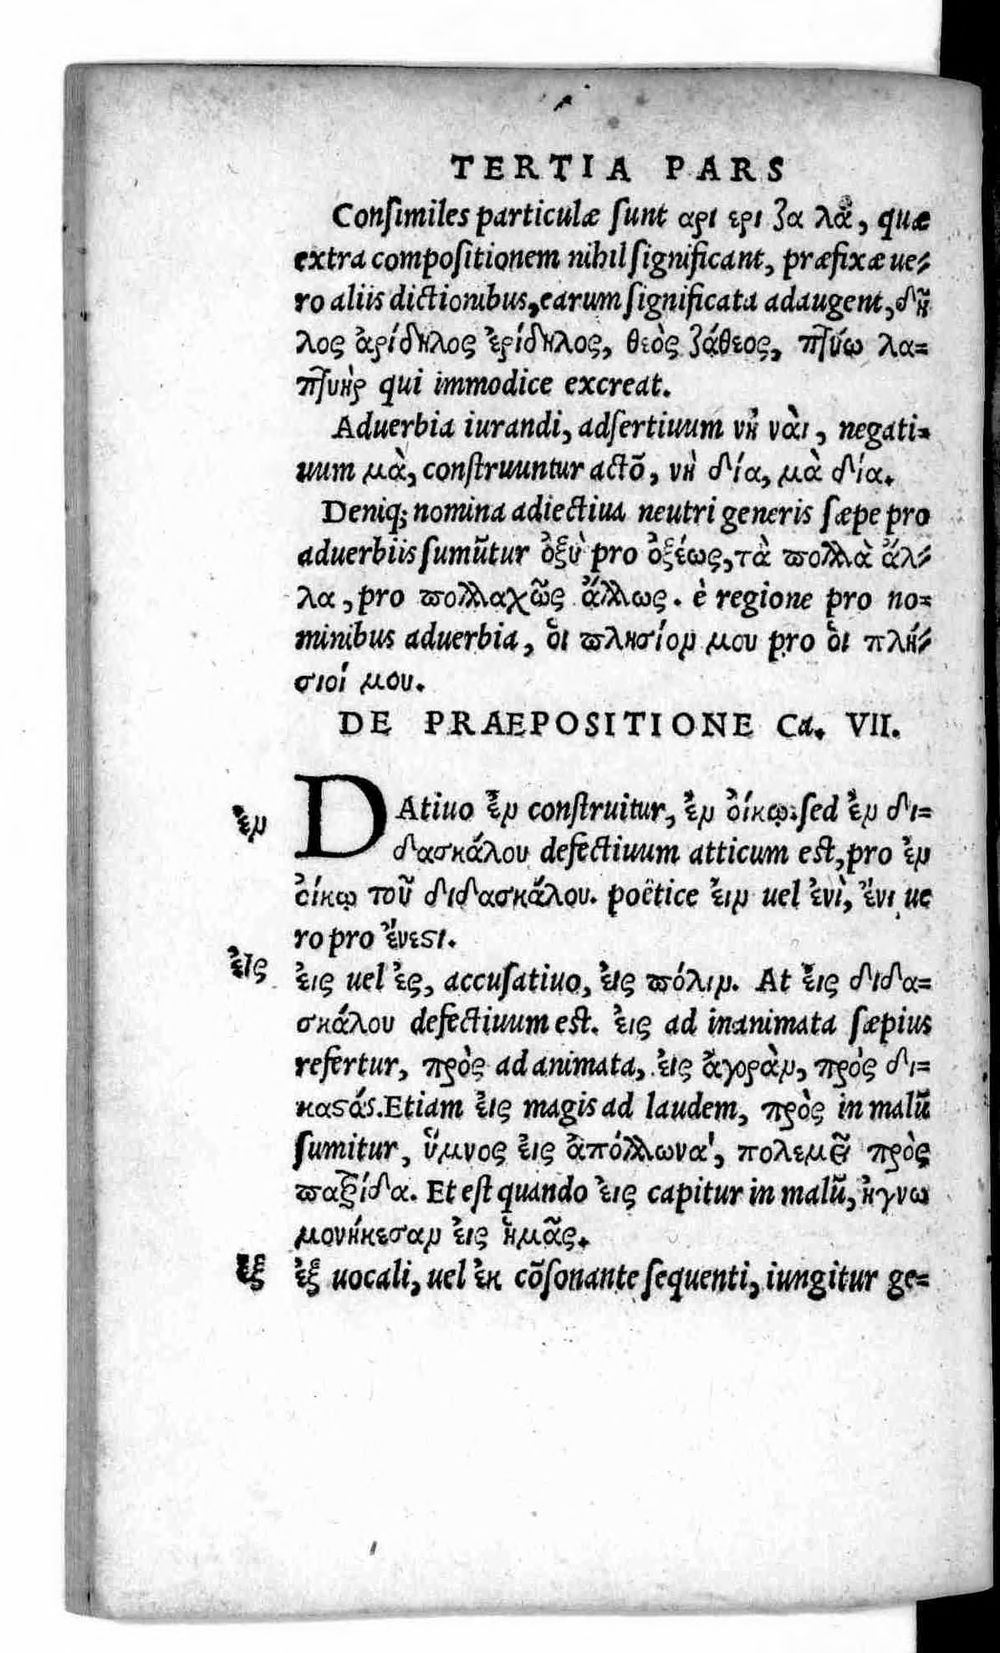 TERTIA PARS
Conſimiles particulæ ſunt αρι ερι ζα λα, quæ
extra compoſitionem nihil ſignificant, præfixæ ue-
ro aliis dictionibus, earum ſignificata adaugent, δῆ
λος ἀρίδηλος ἐρίδηλος, θεὸς ζάθεος, πτύω λα-
πτυὴρ qui immodice excreat.
Aduerbia iurandi, adſertiuum νὴ ναὶ, negati-
uum μὰ, conſtruuntur actō, νὴ δία, μὰ δία.
Deniq; nomina adiectiua neutri generis ſæpe pro
aduerbiis ſumũtur ὀξὺ pro ὀξέως, τὰ πολλὰ ἄλ-
λα, pro πολλαχῶς ἄλλως. è regione pro no-
minibus aduerbia, ὁι πλησίον μου pro ὁι πλή-
σιοί μου.
DE PRAEPOSITIONE Ca. VII.
ἐν
DAtiuo ἐν conſtruitur, ἐν ὀίκῳ: ſed ἐν δι-
δασκάλου defectiuum atticum eſt, pro ἐν
ὀίκῳ τοῦ διδασκάλου. poëtice ἐιν uel ἐνὶ, ἔνι ue
ro pro ἔνεϛι.
ἐις
ἐις uel ἐς, accuſatiuo, ἐις πόλιν. At ἐις διδα-
σκάλου defectiuum eſt. ἐις ad inanimata ſæpius
refertur, πρὸς ad animata, ἐις ἀγορὰν, πρὸς δι-
καϛάς. Etiam ἐις magis ad laudem, πρὸς in malũ
ſumitur, ὕμνος ἐις ἀπόλλωνα, πολεμεῖ πρὸς
παξίδα. Et eſt quando ἐις capitur in malũ, ἠγνω
μονήκεσαν ἐις ἡμᾶς.
ἐξ
ἐξ uocali, uel ἐκ cōſonante ſequenti, iungitur ge-